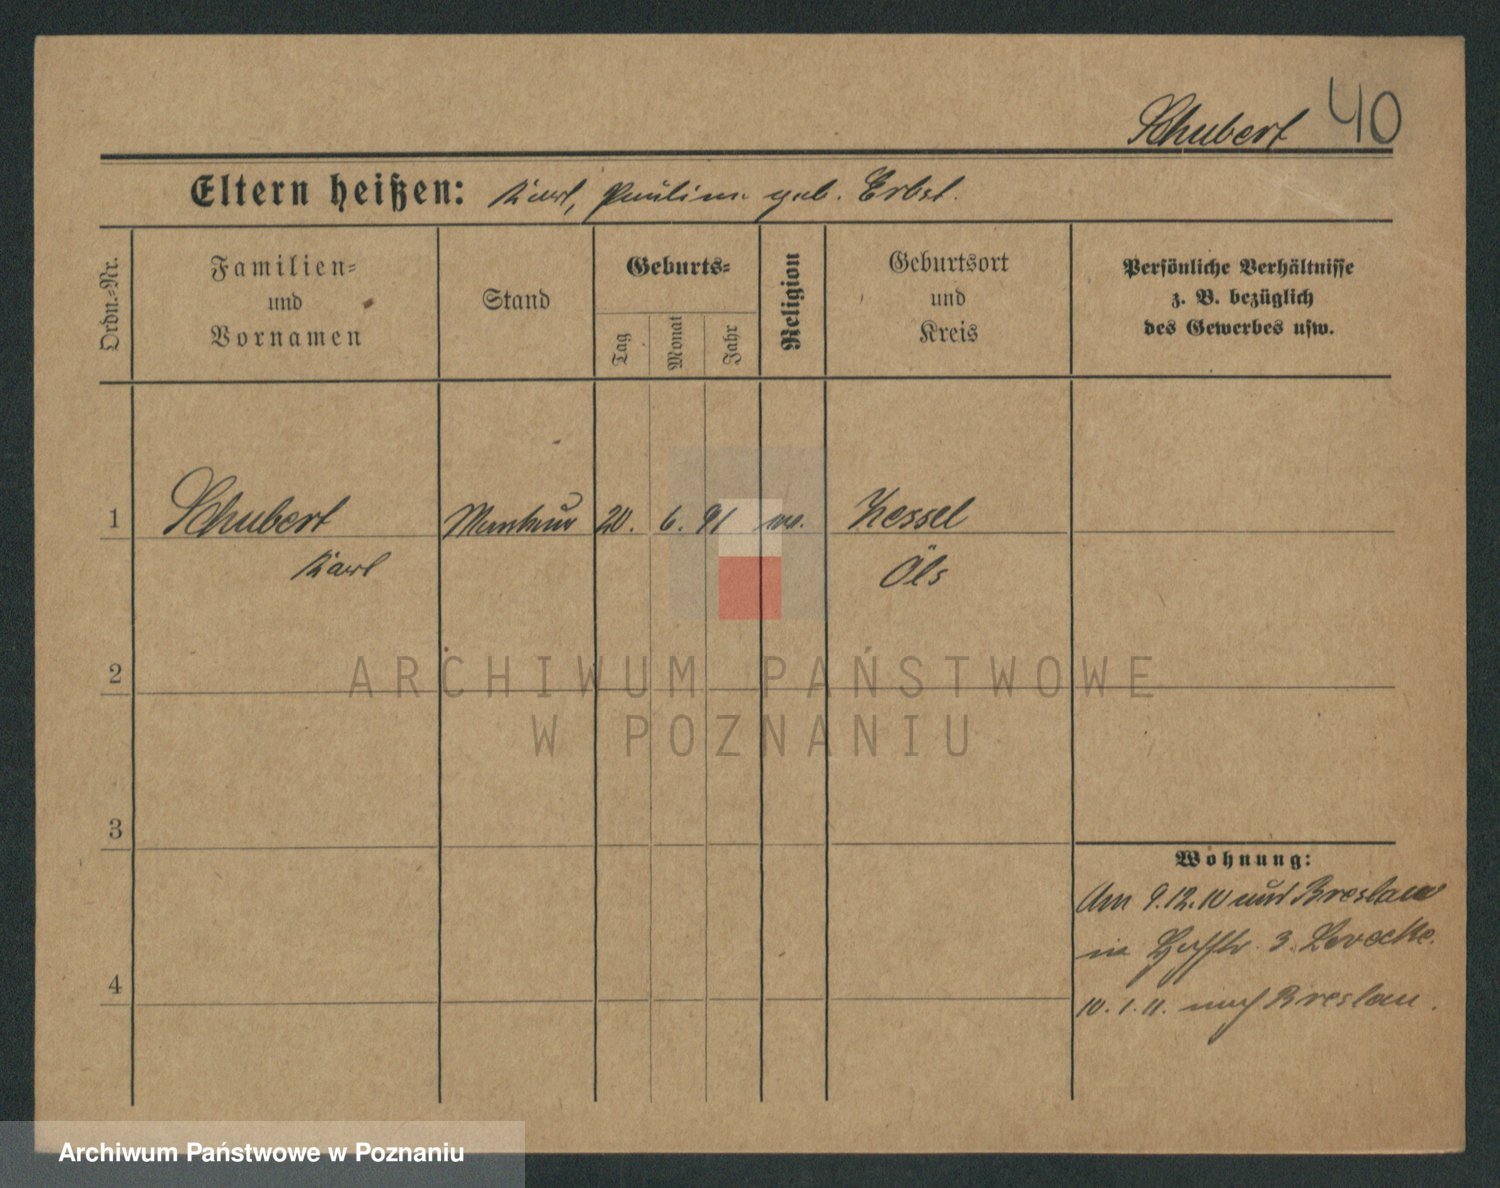 Schubert 40
Eltern heißen: Karl, Pauline geb. Erbst.
Ordn.-Nr.
Familien-
und
Vornamen
Stand
Geburts-
Tag
Monat
Jahr
Religion
Geburtsort
und
Kreis
Persönliche Verhältnisse
z. B. bezüglich
des Gewerbes usw.
1 Schubert 20. 6. 91 Zessel
Karl Öls
2
3
4
Wohnung:
Am 9.12.10 Breslau
in 3.
10.1.11. nach Breslau.
ARCHIWUM PAŃSTWOWE
W POZNANIU
Archiwum Państwowe w Poznaniu